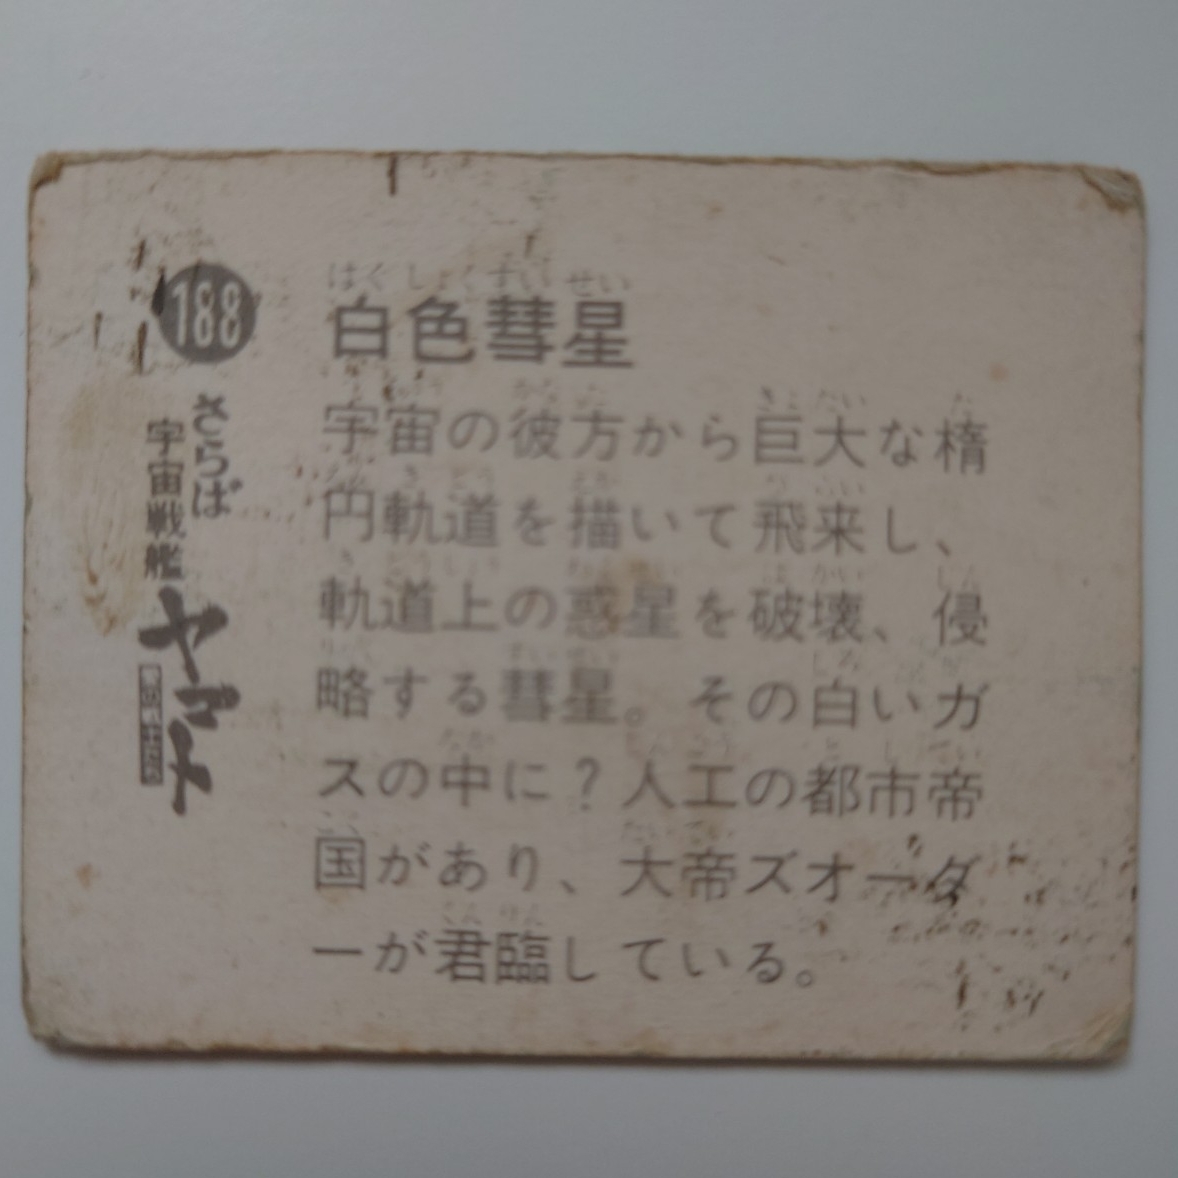 188
さらば
宇宙戦艦
ヤマト
はくしょくすいせい
白色彗星
宇宙の彼方から巨大な楕
円軌道を描いて飛来し、
軌道上の惑星を破壊、侵
略する彗星。その白いガ
スの中に?人工の都市帝
国があり、大帝ズオーダ
ーが君臨している。